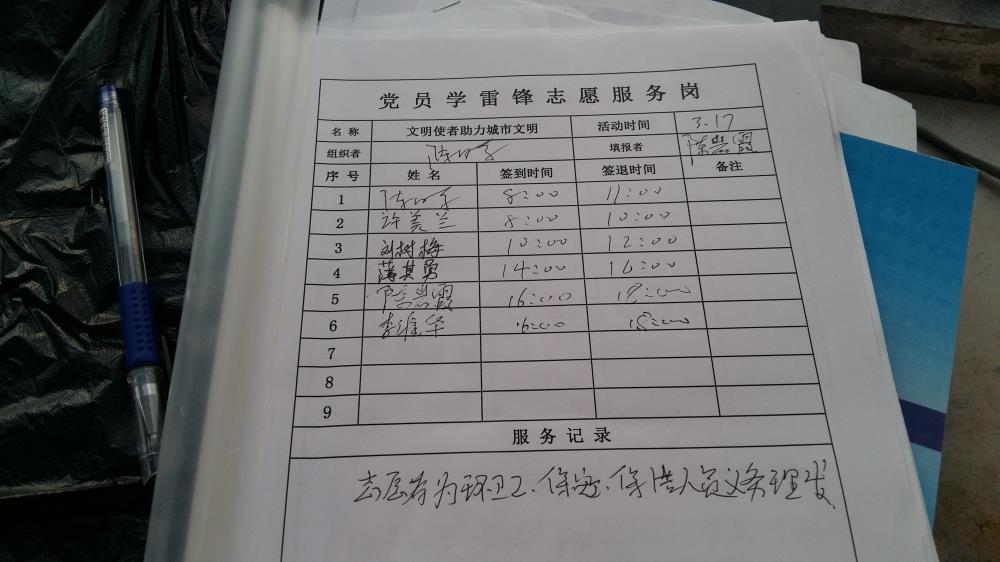 党员学雷锋志愿服务岗
名称 文明使者助力城市文明 活动时间 3.17
组织者 填报者 陈岩霞
序号 姓名 签到时间 签退时间 备注
1 8:00 11:00
2 许美兰 8:00 10:00
3 刘树梅 10:00 12:00
4 薄其勇 14:00 16:00
5 陈岩霞 16:00 18:00
6 李维华 16:00 18:00
7
8
9
服务记录
志愿者为环卫工、保安、保洁人员义务理发